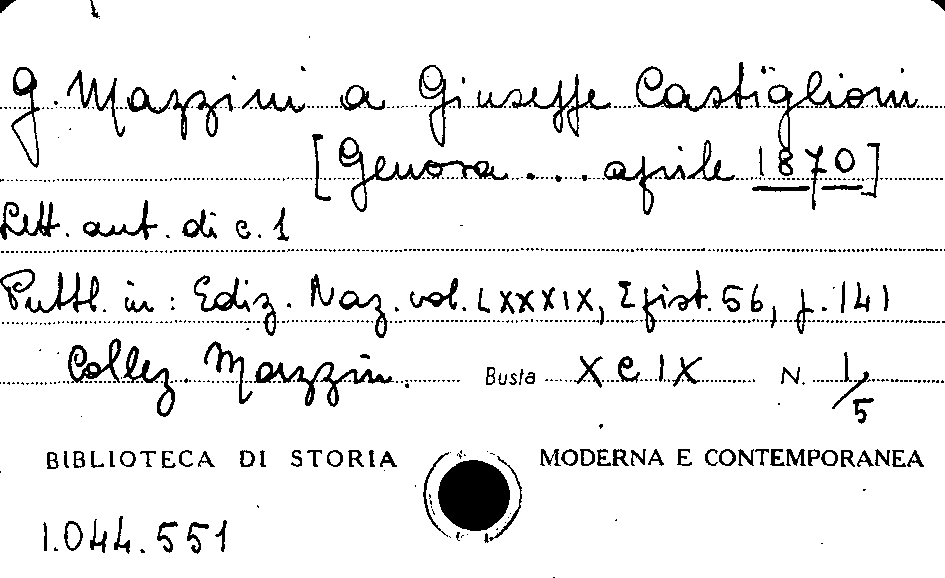 G. Mazzini a Giuseppe Castiglioni
[Genova ... aprile 1870]
Lett. aut. di c. 1
Pubbl. in: Ediz. Naz. vol. LXXXIX, Epist. 56, p. 141
Collez. Mazzin. Busta XCIX N. 1/5
BIBLIOTECA DI STORIA MODERNA E CONTEMPORANEA
1.044.551